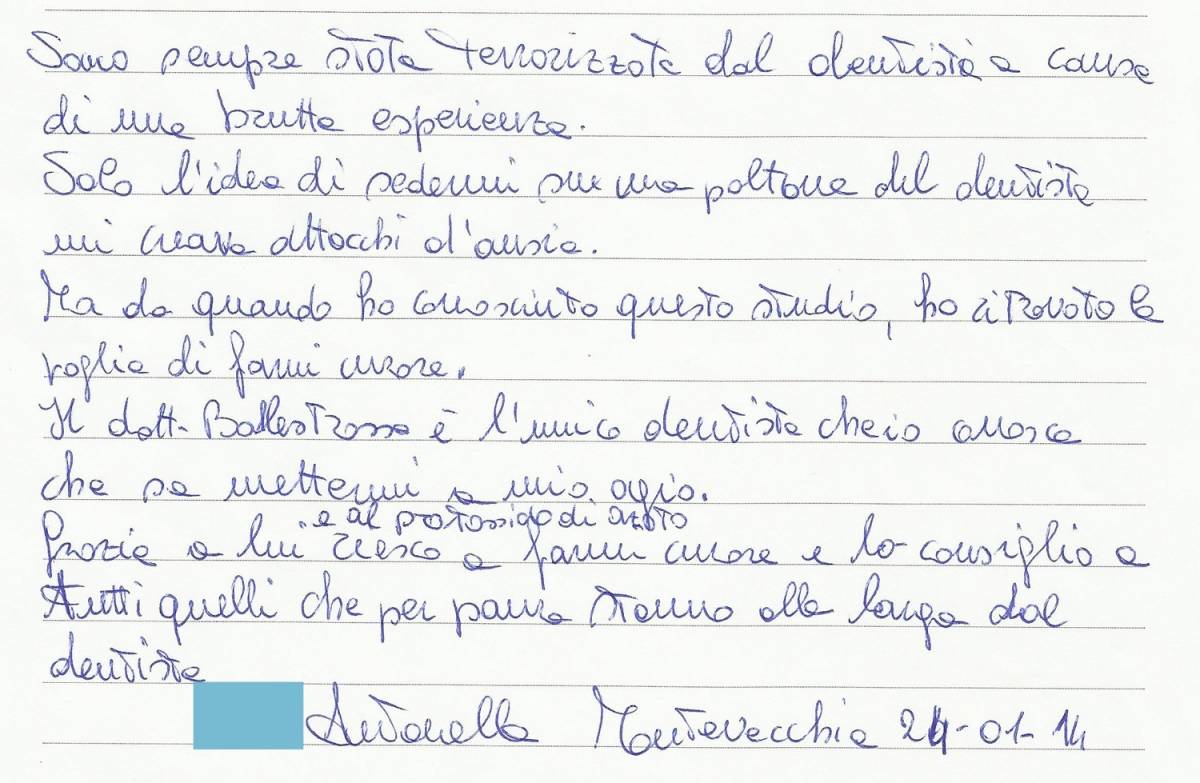 Sono sempre stata terrorizzata dal dentista a causa
di una brutta esperienza.
Solo l'idea di sedermi su una poltrona del dentista
mi creava attacchi d'ansia.
Ma da quando ho conosciuto questo studio, ho ritrovato la
voglia di farmi curare.
Il dott. Ballestrasse è l'unico dentista che io conosca
che sa mettermi a mio agio.
e al protossido di azoto
Grazie a lui riesco a farmi curare e lo consiglio a
tutti quelli che per paura stanno alla larga dal
dentista
Antonella Montevecchia 24-01-14